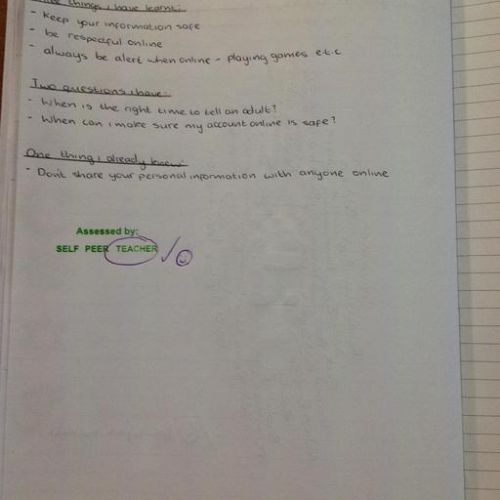 things i have learnt:
- Keep your information safe
- be respectful online
- always be alert when online - playing games e.t.c
Two questions i have:
- When is the right time to tell an adult?
- When can i make sure my account online is safe?
One thing i already knew:
- Don't share your personal information with anyone online
Assessed by:
SELF PEER TEACHER